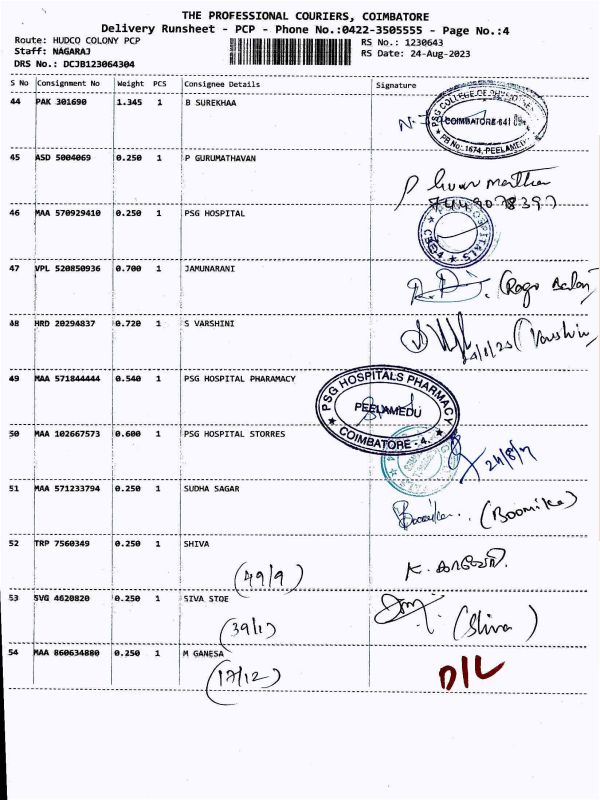 THE PROFESSIONAL COURIERS, COIMBATORE
Delivery Runsheet - PCP - Phone No.:0422-3505555 - Page No.:4
Route: HUDCO COLONY PCP
RS No.: 1230643
Staff: NAGARAJ
RS Date: 24-Aug-2023
DRS No.: DCJB123064304
S No Consignment No Weight PCS Consignee Details Signature
44 PAK 301690 1.345 1 B SUREKHAA
COIMBATORE 641
PB No: 1674, PEELAMEDU
45 ASD 5004069 0.250 1 P GURUMATHAVAN
46 MAA 570929410 0.250 1 PSG HOSPITAL
47 VPL 520850936 0.700 1 JAMUNARANI
48 HRD 20294837 0.720 1 S VARSHINI
(Varshini)
49 MAA 571844444 0.540 1 PSG HOSPITAL PHARAMACY
PSG HOSPITALS PHARMACY
PEELAMEDU
COIMBATORE - 4.
50 MAA 102667573 0.600 1 PSG HOSPITAL STORRES
51 MAA 571233794 0.250 1 SUDHA SAGAR
(Boomika)
52 TRP 7560349 0.250 1 SHIVA
(49/9)
53 SVG 4620820 0.250 1 SIVA STOE
(Shiva)
54 MAA 860634880 0.250 1 M GANESA
(17/12)
D/L